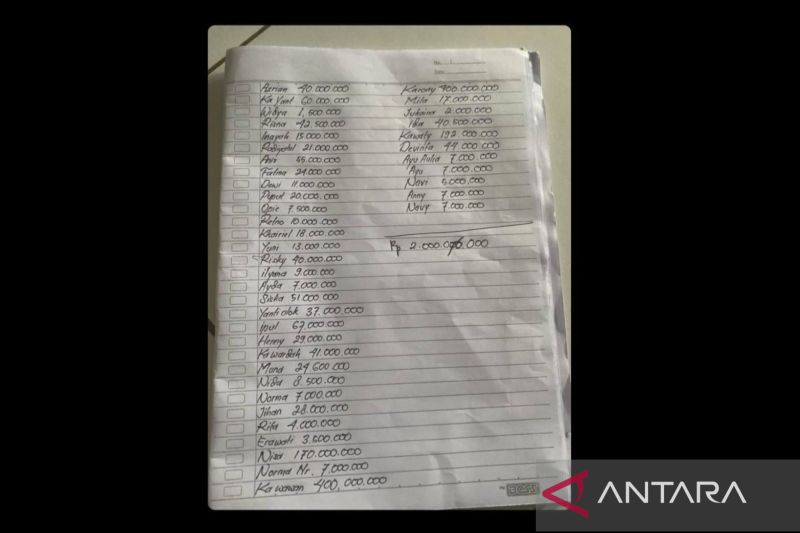 No.
Date
Azrian 40.000.000
Ka Yanti 60.000.000
Widya 1,500.000
Riana 42.500.000
Inayah 15.000.000
21.000.000
Anis 55.000.000
Fatma 24.000.000
Dewi 11.000.000
Puput 20.000.000
Opie 7.500.000
Retno 10.000.000
Khairiel 18.000.000
Yuni 13.000.000
Ricky 40.000.000
ilyana 9.000.000
Ayda 7.000.000
Siska 51.000.000
Yanti 37.000.000
Ipul 67.000.000
Henny 29.000.000
Ka Wardah 41.000.000
Muna 24.600.000
Nida 8.500.000
Norma 7.000.000
Jihan 28.000.000
Rita 4.000.000
Erawati 3.500.000
Nisa 170.000.000
Norma Nr. 7.000.000
Ka wawan 400,000.000
Karony 400.000.000
Mila 17.000.000
Jukaina 2.000.000
Iba 40.500.000
Kawaty 192.000.000
Devinta 44.000.000
Ayu Aulia 7.000.000
Ayu 7.000.000
Novi 5.000.000
Anny 7.000.000
Novy 7.000.000
Rp 2.000.000.000
ANTARA